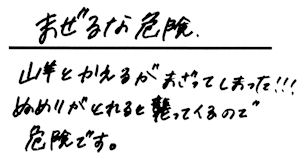 まぜるな危険.
山羊とかえるがまざってしまった!!!
ぬめりがとれると襲ってくるので
危険です。